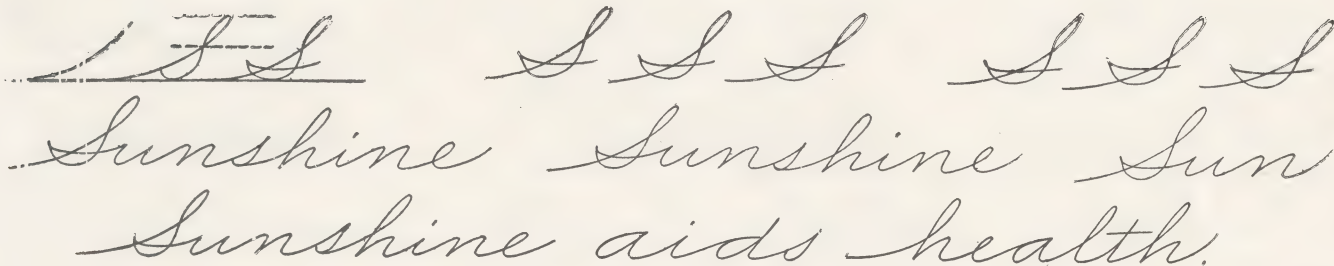 S S S S S S S S
Sunshine Sunshine Sun
Sunshine aids health.